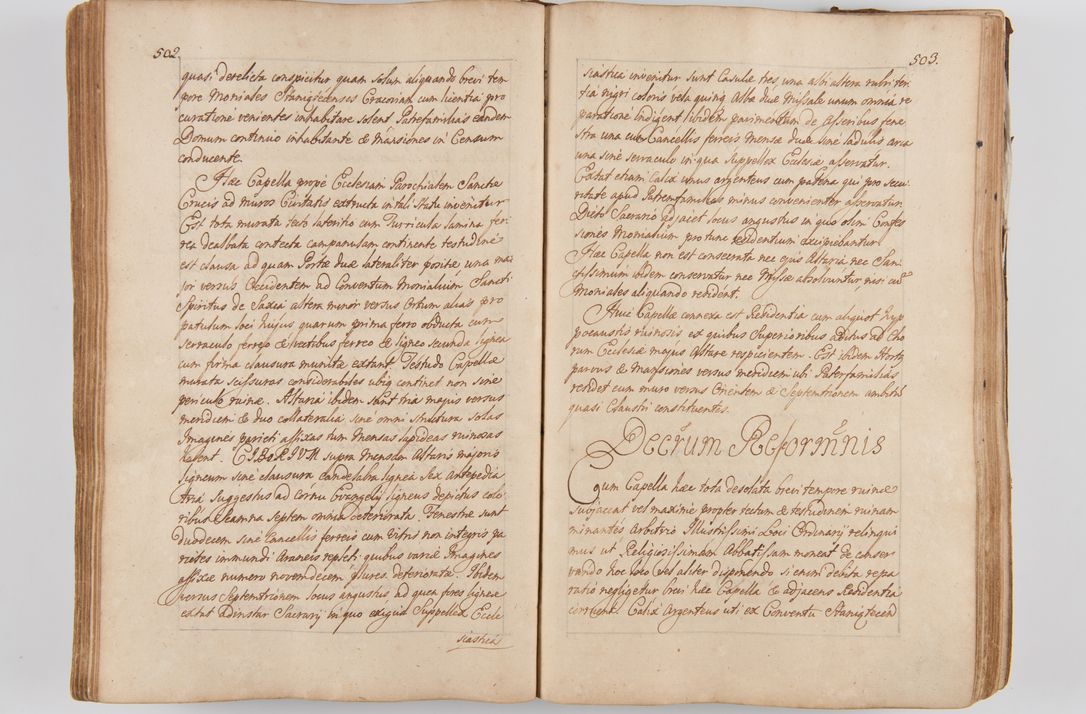 502.
quasi derelicta conspicitur quam solum aliquando brevi tem
pore Moniales Staniętecenses Cracoviam cum licentia pro
curatione venientes inhabitare solent Patrefamilias eandem
Domum continuo inhabitante & Mansiones in Censum
conducente.
Hæc Capella prope Ecclesiam Parochialem Sanctæ
Crucis ad muros Civitatis extructa in tali Statu invenitur
Est tota murata tecto lateritio cum Turricula lamina fer:
rea dealbata contecta campanulam continente testudine
est clausa ad quam Portæ duæ lateraliter positæ, una ma
jor versus Occidentem ad Conventum Monialium Sancti
Spiritus de Saxia altera minor versus Ortum alias pro
patulum loci hujus quarum prima ferro obducta cum
serraculo ferreo & vectibus ferreo & ligneo secunda lignea
cum firma clausura munitæ extant. Testudo Capellæ
murata scissuras considerabiles ubiq continet non sine
periculo ruinæ. Altaria ibidem sunt tria majus versus
meridiem & duo collateralia sine omni structura solas
Imagines parieti affixas tum Mensas lapideas ruinosas
habent. CIBORIVM supra mensam Altaris majoris
ligneum sine clausura candelabra lignea sex Antepedia
tria Suggestus ad cornu Evangelij ligneus depictus colo
ribus Scamna septem omnia deteriorata. Fenestræ sunt
duodecem sine Cancellis ferreis cum Vitris non integris pa
rietes immundi Araneis repleti quibus variæ Imagines
affixæ numero novemdecem plures deterioratæ. Ibidem
versus Septemtrionem locus angustus ad quem fores ligneæ
extat adinstar Sacrarij in quo exigua Suppellex Eccle
siastica
503.
siastica invenitur sunt Casulæ tres, una albi altera rubri ter:
tia nigri coloris vela quinq Albæ duæ Missale unum omnia re
paratione indigent ibidem pavimentum de Asseribus fene
stra una cum Cancellis ferreis Mensæ duæ sine ladulis arca
una sine serraculo in qua Suppellex Ecclesiæ asservatur.
Extat etiam Calix unus argenteus cum patena qui pro secu
ritate apud Patremfamilias minus convenienter asservatur.
Dicto Sacrario adjacet locus angustus in quo olim Confes
siones Monialium pro tunc residentium excipiebantur.
Hæc Capella non est consecrata nec ejus Altaria nec San
ctissimum ibidem conservatur nec Missæ absolvuntur nisi cu
Moniales aliquando resident.
Huic Capellæ connexa est Residentia cum aliquot hyp
pocaustis ruinosis ex quibus Superioribus aditus ad Cho
rum Ecclesiæ majus Altare respicientem. Est ibidem Hortus
parvus & Mansiones versus meridiem ubi Paterfamilias
residet cum muro versus Orientem & Septemtrionem ambitu
quasi Claustri constituentes.
Decrum Reformnis
Cum Capella hæc tota desolata brevi tempore ruinæ
subjaceat vel maxime propter tectum & testudinem ruinam
minantes Arbitrio Illustrissimi Loci Ordinarij relinqui
mus ut Religiosissimam Abbatissam moneat de conser
vando hoc loco vel aliter disponendo si enim debita repa
ratio negligetur brevi hæc Capella & adjacens Residentia
corruent. Calix Argenteus uti ex Conventu Staniętecend